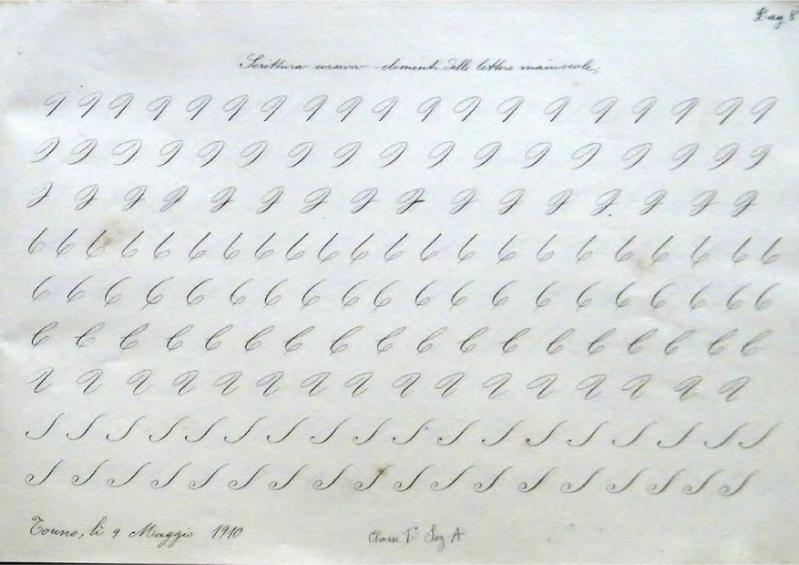 Pag 8
Scrittura corsiva - elementi delle lettere maiuscole;
Torino, li 9 Maggio 1910
Classe 1ª Sez A